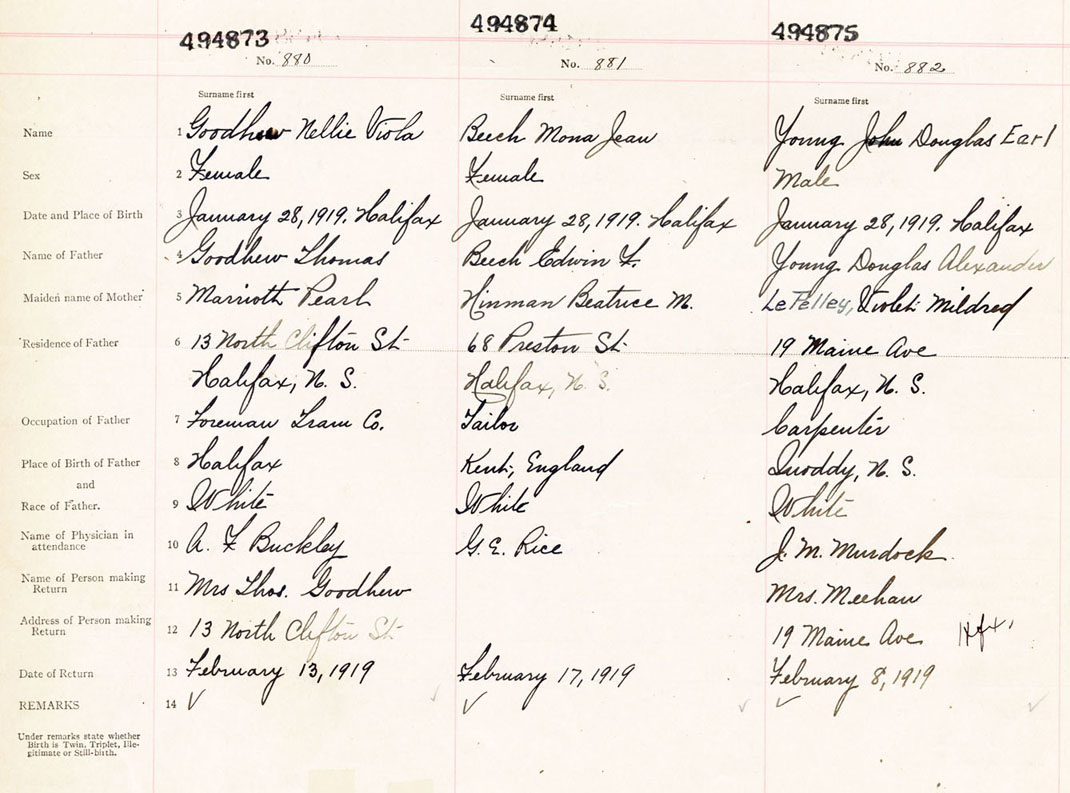 494873 494874 494875
No. 880 No. 881 No. 882
Surname first Surname first Surname first
Name 1 Goodhew Nellie Viola Beech Mona Jean Young John Douglas Earl
Sex 2 Female Female Male
Date and Place of Birth 3 January 28, 1919. Halifax January 28, 1919. Halifax January 28, 1919. Halifax
Name of Father 4 Goodhew Thomas Beech Edwin F. Young Douglas Alexander
Maiden name of Mother 5 Marriott Pearl Hinman Beatrice M. Le Pelley, Violet Mildred
Residence of Father 6 13 North Clifton St 68 Preston St 19 Maine Ave
Halifax, N. S. Halifax, N. S. Halifax, N. S.
Occupation of Father 7 Foreman Tram Co. Tailor Carpenter
Place of Birth of Father 8 Halifax Kent, England Quoddy, N. S.
and
Race of Father. 9 White White White
Name of Physician in
attendance 10 A. F Buckley G. E. Rice J. M. Murdock
Name of Person making
Return 11 Mrs Thos. Goodhew Mrs. Meehan
Address of Person making
Return 12 13 North Clifton St 19 Maine Ave Hfx.
Date of Return 13 February 13, 1919 February 17, 1919 February 8, 1919
REMARKS 14 ✓ ✓ ✓ ✓ ✓ ✓
Under remarks state whether
Birth is Twin, Triplet, Ille-
gitimate or Still-birth.